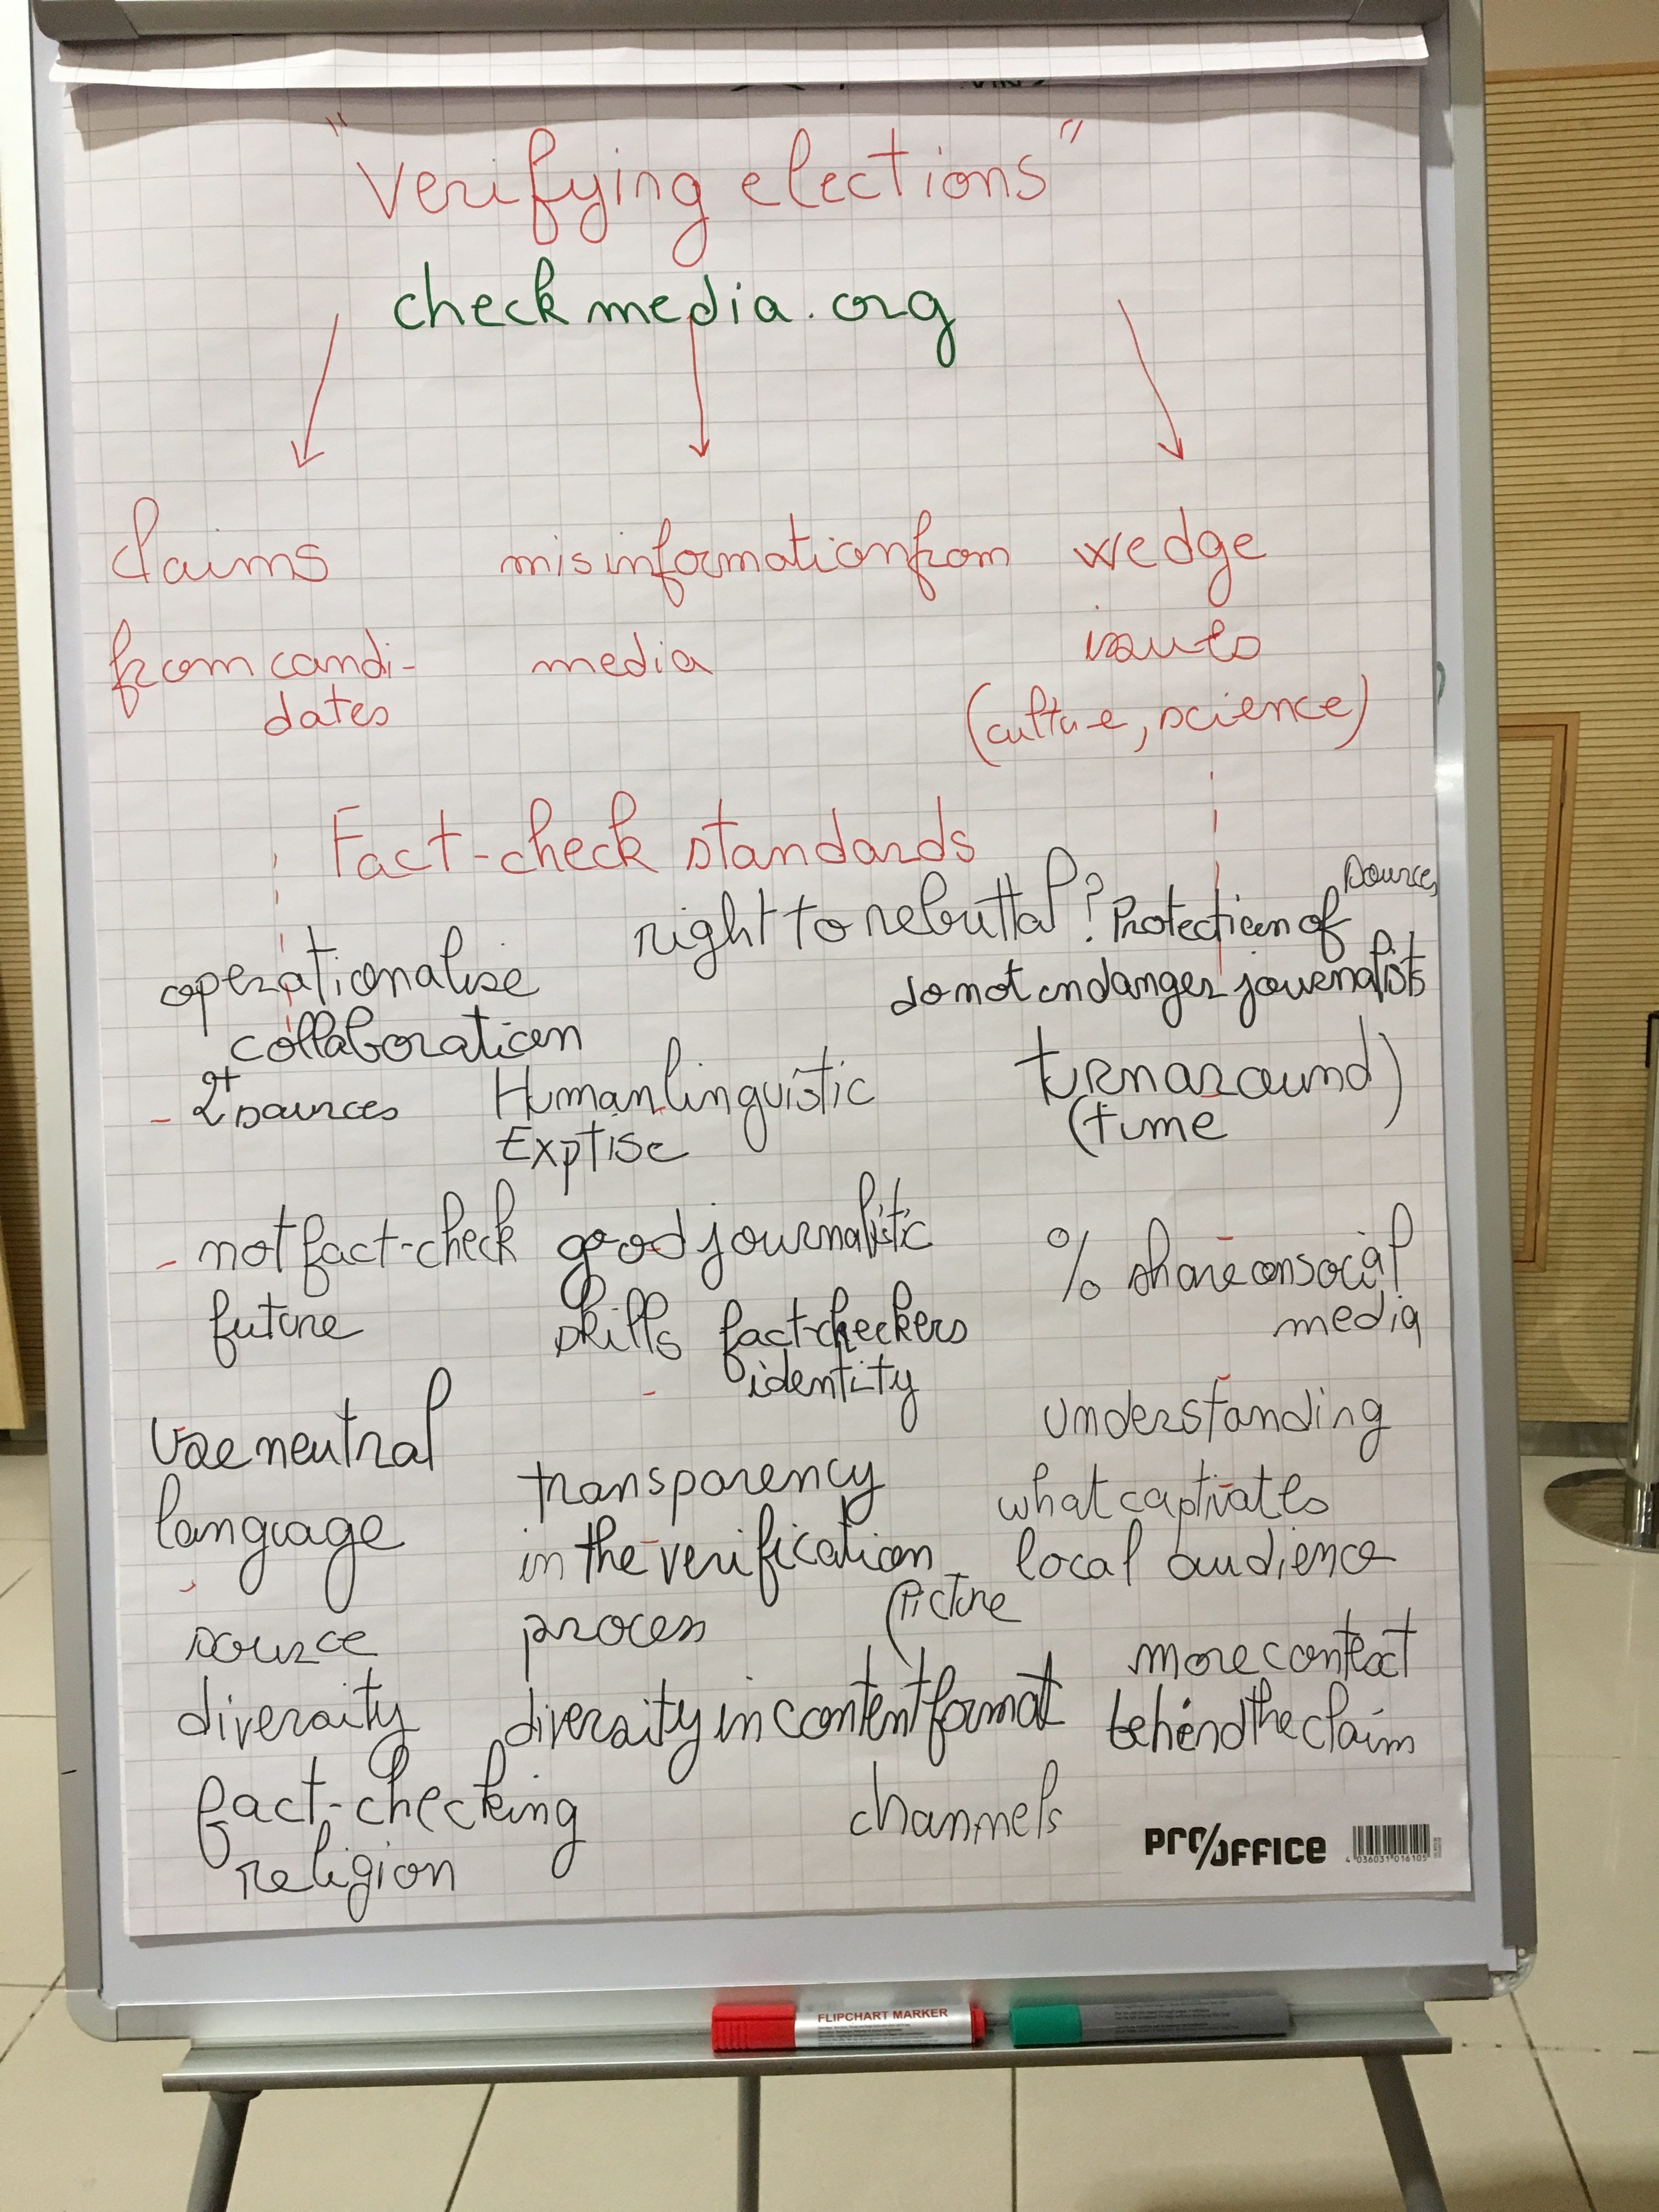 "Verifying elections"
checkmedia.org
claims misinformation from wedge
from candi- media issues
dates (culture, science)
Fact-check standards
right to rebuttal? Protection of sources
operationalise do not endanger journalists
collaboration
- 2+ sources Human linguistic turnaround
Exptise (time)
- not fact-check good journalistic % share on social
future skills fact-checkers media
identity
Use neutral understanding
language transparency what captivates
in the verification local audience
source process (Picture
diversity diversity in content format more context
behind the claim
fact-checking channels
religion
PRO/OFFICE
4 036031 016105
FLIPCHART MARKER